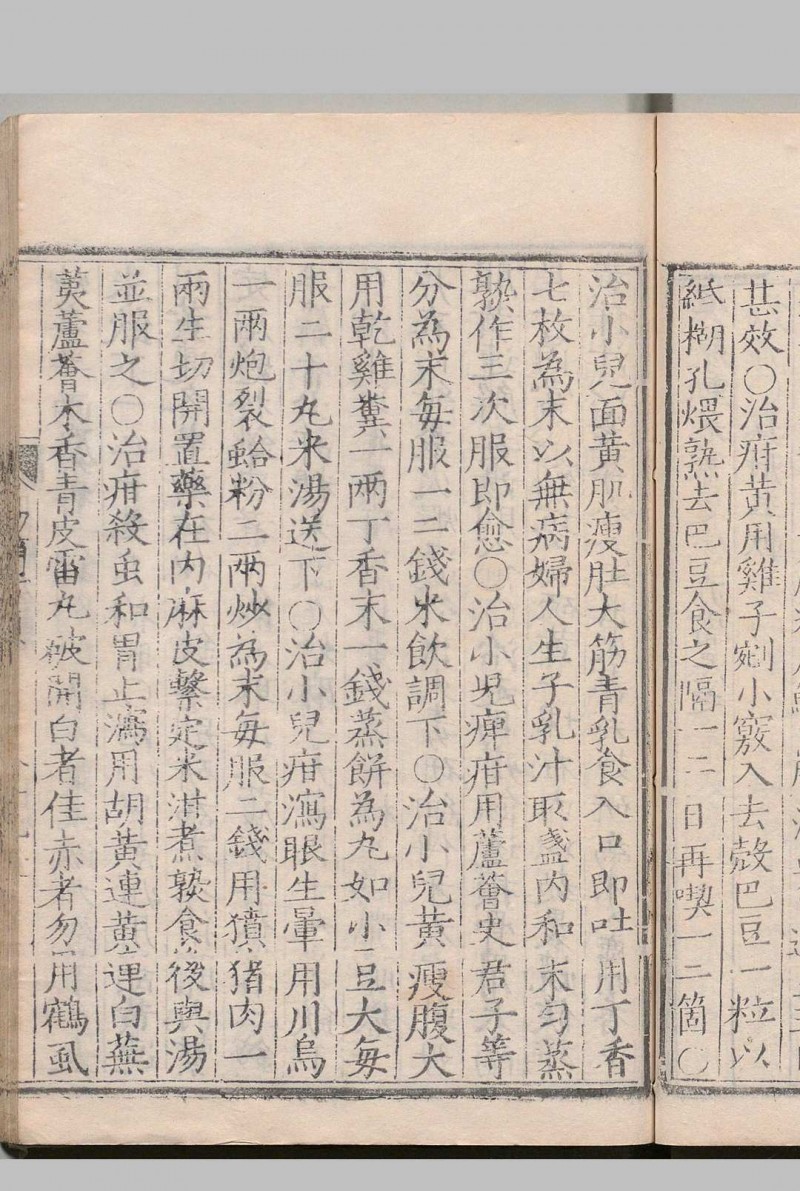 甚效○治疳黃用雞子剜小竅入去殼巴豆一粒以
紙糊孔煨熟去巴豆食之隔一二日再喫一二箇○
治小兒面黃肌瘦肚大筋青乳食入口即吐用丁香
七枚為末以無病婦人生子乳汁取盞內和末勻蒸
熟作三次服即愈○治小児痺疳用蘆薈史君子等
分為末每服一二錢米飲調下○治小兒黃瘦腹大
用乾雞糞一兩丁香末一錢蒸餅為丸如小豆大每
服二十丸米湯送下○治小兒疳瀉眼生暈用川烏
一兩炮裂蛤粉二兩炒為末每服二錢用㹠猪肉一
兩生切開置藥在內麻皮繫定米泔煮熟食後與湯
並服之○治疳殺虫和胃止瀉用胡黃連黃連白蕪
荑蘆薈木香青皮雷丸破開白者佳赤者勿用鶴虱